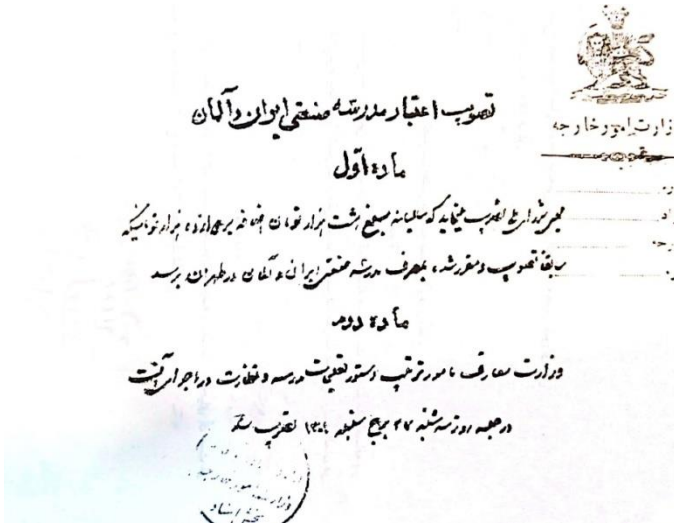 وزارت امور خارجه
تصویب اعتبار مدرسه صنعتی ایران و آلمان
ماده اول
مجلس شورای ملی تصویب مینماید که سالیانه مبلغ هشت هزار تومان اضافه بر دوازده هزار تومانیکه
سابقا تصویب و مقرر شد، بمصرف مدرسه صنعتی ایران و آلمان در طهران برسد
ماده دوم
وزارت معارف مامور ترتیب دستور تعلیمات مدرسه و نظارت در اجرای آنست
در جلسه روز سه شنبه ۲۷ برج سنبله ۱۳۰۱ تصویب شد
وزارت امور خارجه
بخش اسناد